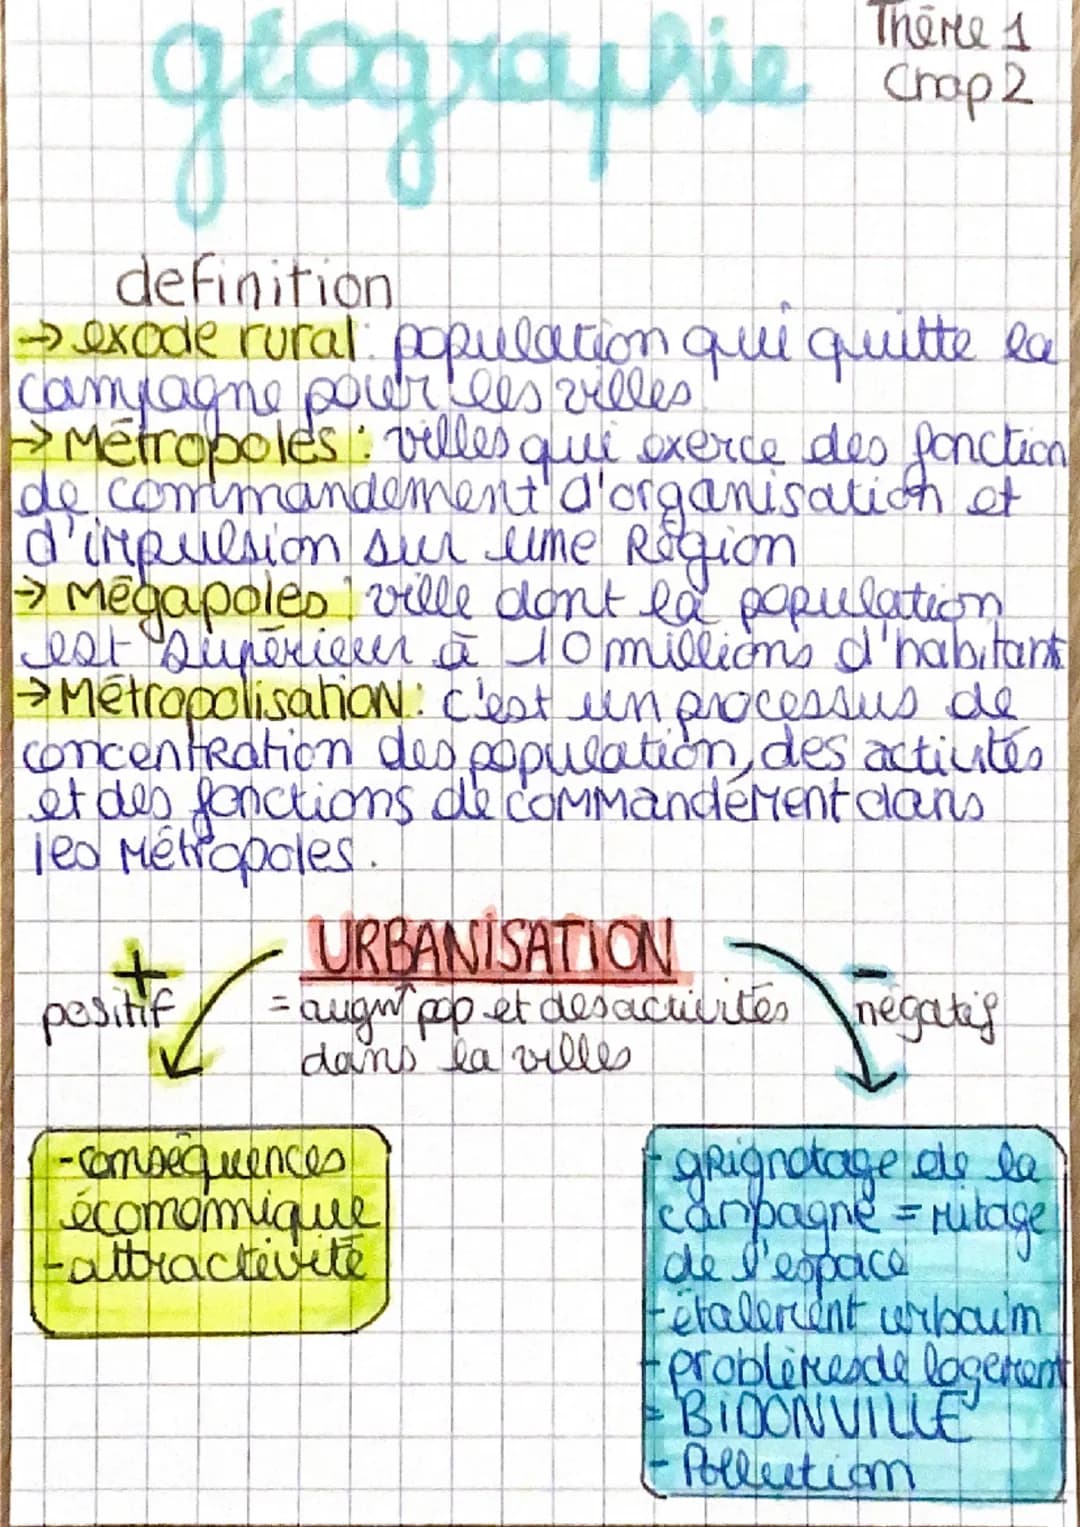 géographie
Thème 1
Chap 2
definition
→ exode rural: population qui quitte la
campagne pour les villes
→ Métropoles : villes qui exerce des fonction
de commandement d'organisation et
d'impulsion sur une Région
→ Mégapoles : ville dont la population
est supérieur à 10 millions d'habitant
→ Métropolisation : c'est un processus de
concentration des population, des activités
et des fonctions de commandement dans
les Métropoles.
URBANISATION
+
positif
= augmt pop et des activités
dans la villes
-
négatif
- conséquences
économique
- attractivité
- grignotage de la
campagne = mitage
de l'espace
- étalement urbain
- problèmes de logement
= BIDONVILLE
- Pollution